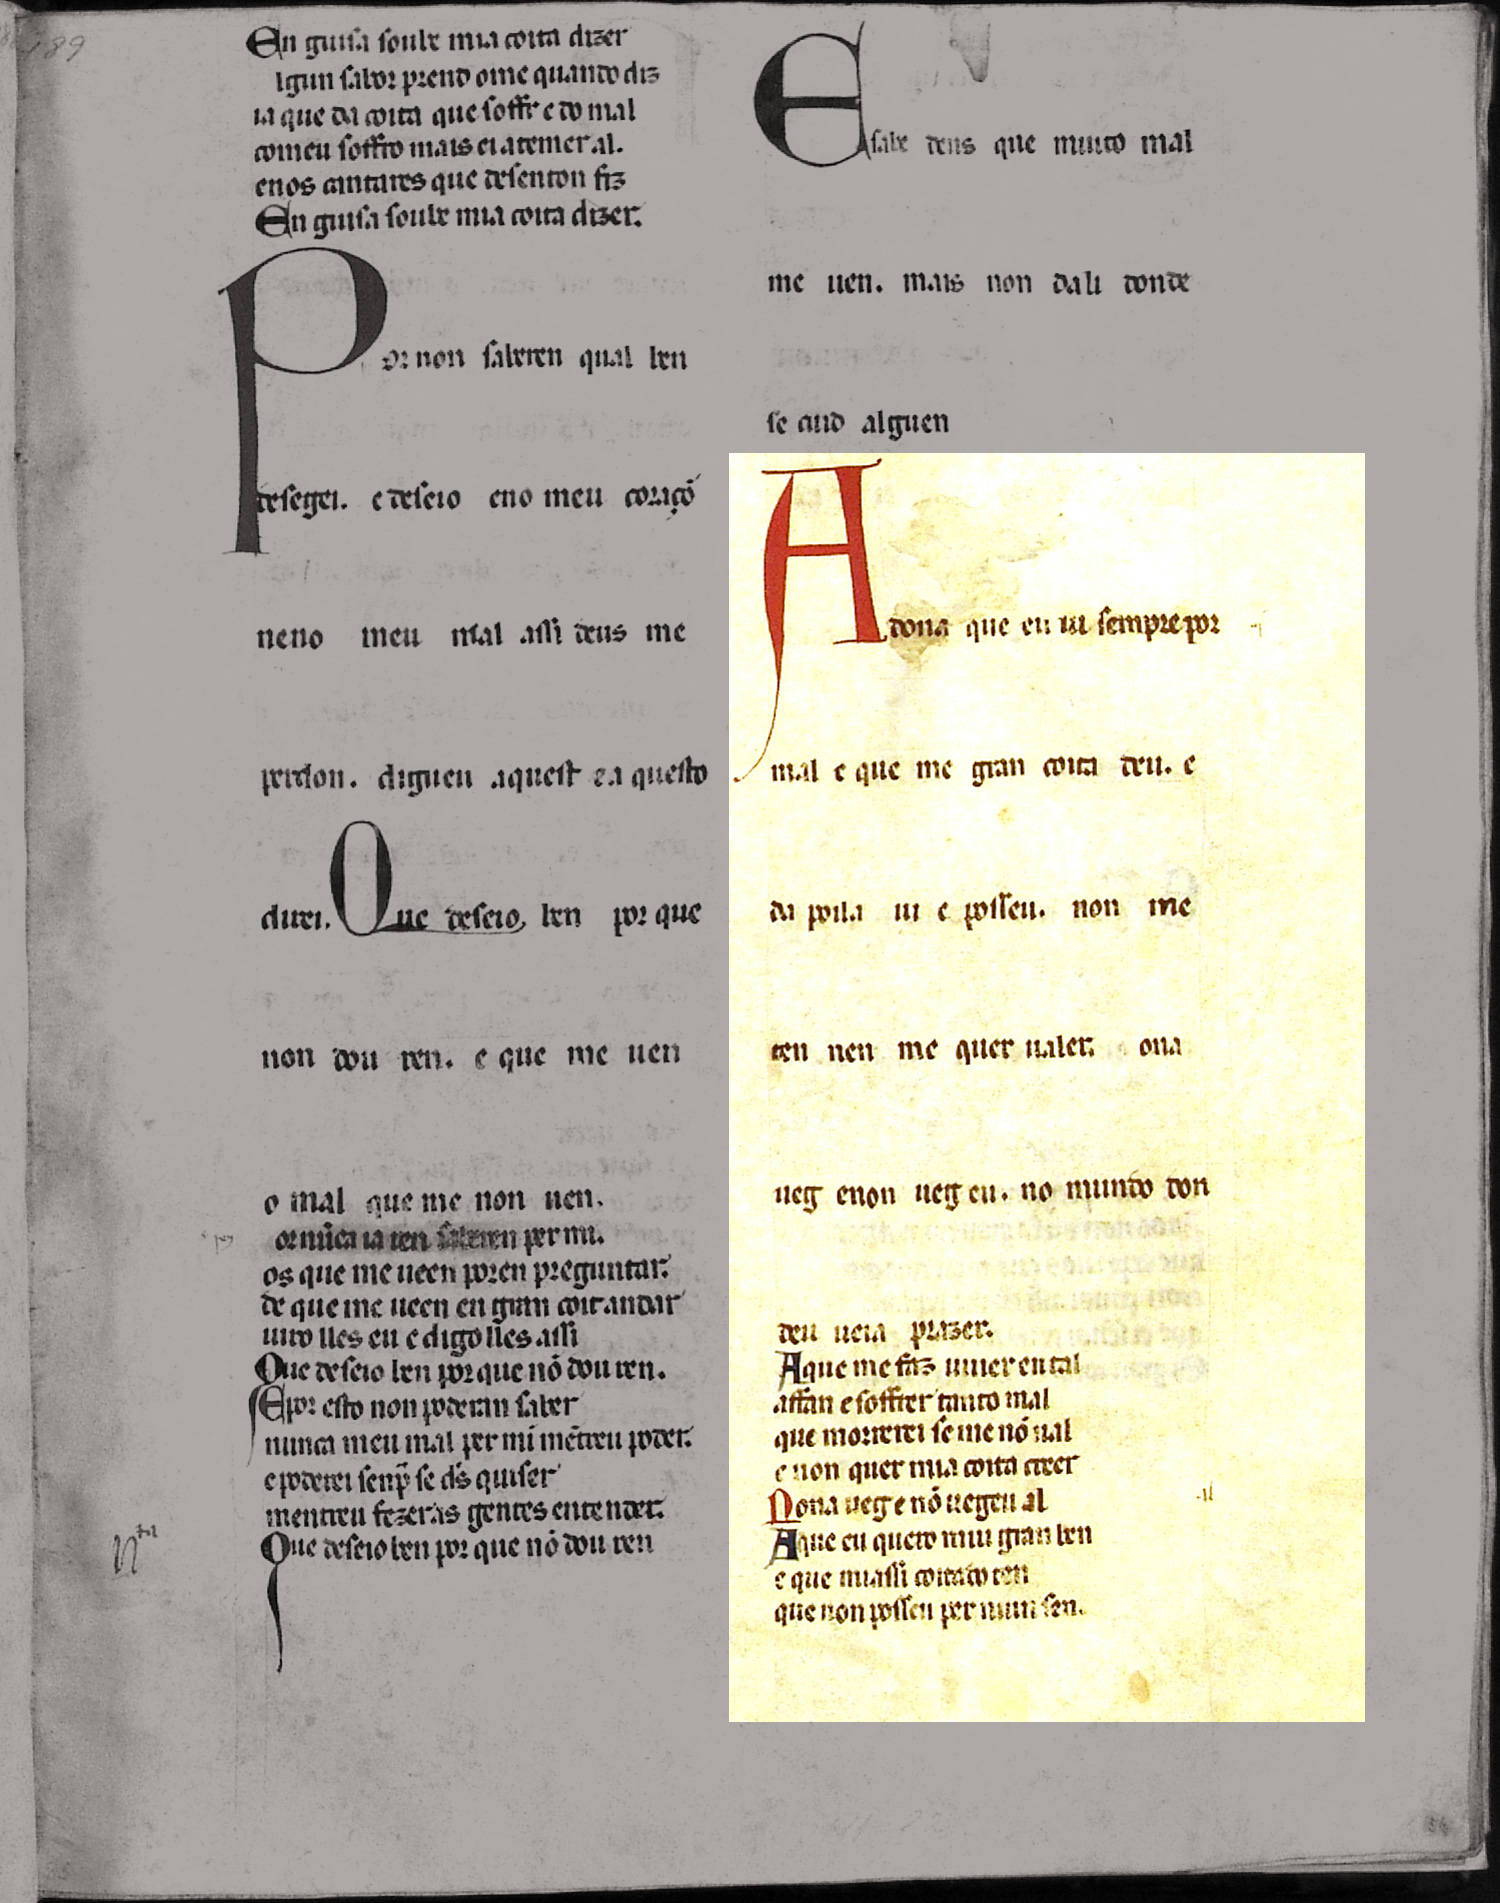 189
En guisa soube mia coita dizer
lgun sabor prend ome quando diz
ia que da coita que soffr e do mal
comeu soffro mais ei atemer al.
enos cantares que desenton fiz
En guisa soube mia coita dizer.
Por non saberen qual ben
desegei. e deseio eno meu coraçõ
neno meu mal assi deus me
perdon. digueu aquest e aquesto
direi. Que deseio ben por que
non dou ren. e que me uen
o mal que me non uen.
or nũca ia ren saberen per mi.
os que me ueen poren preguntar.
de que me ueen en gran coit andar
uiro lles eu e digo lles assi
Que deseio ben por que nõ dou ren.
E por esto non poderan saber
nunca meu mal per mi mẽtreu poder.
e poderei senp̃ se ds̃ quiser
mentreu fezer as gentes entender.
Que deseio ben por que nõ dou ren
Esabe deus que muito mal
me uen. mais non dali donde
se cuid alguen
A dona que eu ui sempre por
mal e que me gran coita deu. e
da poila ui e posseu. non me
ten nen me quer ualer. ona
ueg enon ueg eu. no mundo don
deu ueia prazer.
Aque me faz uiuer en tal
affan e soffrer tanto mal
que morrerei se me nõ ual
e non quer mia coita creer
Nona ueg e nõ uegeu al
Aque eu quero mui gran ben
e que massi coitado ten
que non posseu per niun sen.